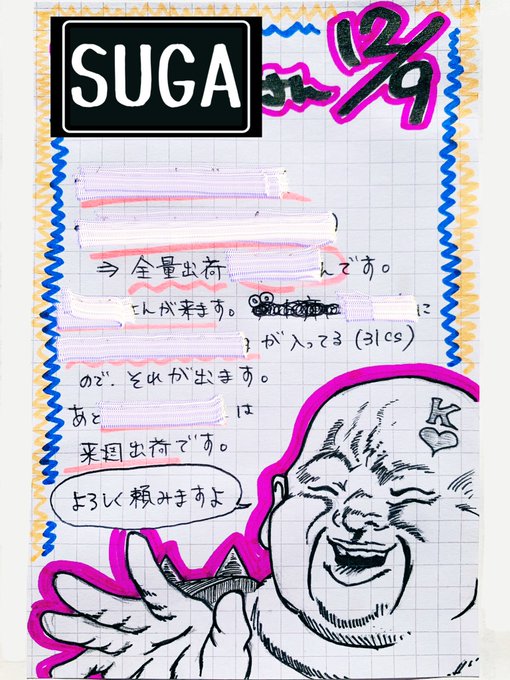 SUGA さん 12/9
⇒ 全量出荷 んです。
さんが来ます。 に
が入ってる (31cs)
ので、それが出ます。
あと は
来週出荷です。
よろしく頼みますよ
K